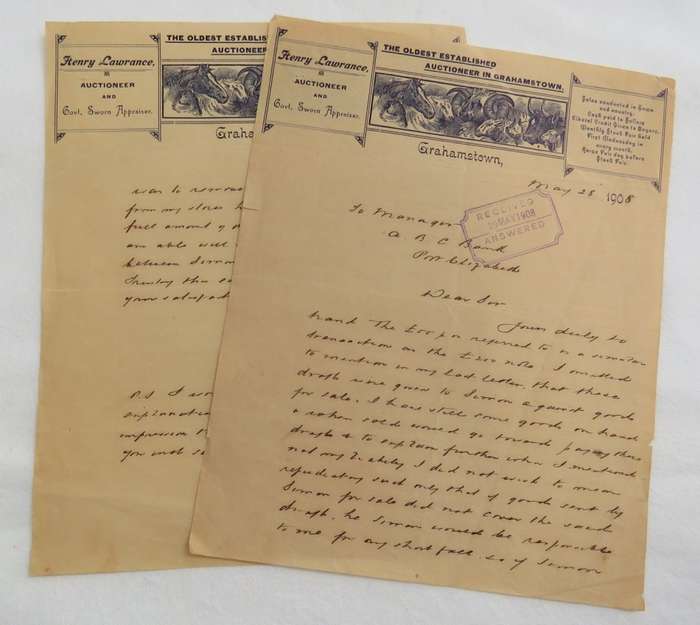 Henry Lawrance,
AUCTIONEER
AND
Govt. Sworn Appraiser.
THE OLDEST ESTABLISHED
AUCTIONEER
Graham
was to remove
from my store
full amount of
are able will
between Simon
your satisfact
P.S. I wo
explanation
impression
you with
Henry Lawrance,
AUCTIONEER
AND
Govt. Sworn Appraiser.
THE OLDEST ESTABLISHED
AUCTIONEER IN GRAHAMSTOWN.
Sales conducted in Town
and country.
Cash paid to Sellers
Liberal Credit Given to Buyers.
Monthly Stock Fair held
First Wednesday in
every month.
Horse Fair day before
Stock Fair.
Grahamstown,
May 28 1908
RECEIVED
29 MAY 1908
ANSWERED
To Manager
A B C Bank
Port Elizabeth
Dear Sir
Yours duly to
hand The £00 referred to is a similar
transaction as the £200 note. I omitted
to mention in my last letter, that these
drafts were given to Simon against goods
for sale. I have still some goods on hand
& when sold would go towards paying these
drafts & to explain further when I mentioned
not my liability I did not wish to mean
repudiating such only that if goods sent by
Simon for sale did not cover the said
drafts, he Simon would be responsible
to me for any short fall. so if Simon